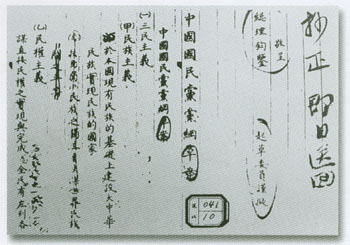 抄正 即日送回
敬呈
總理鈞鑒
起草委員謹擬
中國國民黨黨綱草案
中國國民黨黨綱
㈠三民主義
(甲)民族主義
於本國現有民族的基礎上建設大中華
民族實現民族的國家
扶助弱小民族之獨立自決謀世界民族
(乙)民權主義
謀直接民權之實現與完成 全民有左列各
041
10